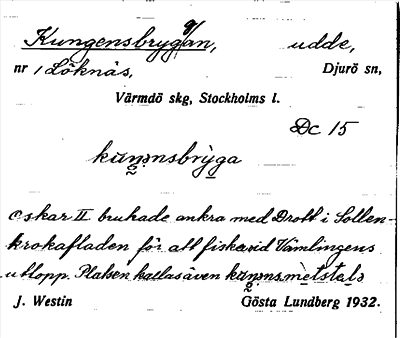 Kungensbryggan, udde,
nr 1 Löknäs, Djurö sn,
Värmdö skg, Stockholms l.
Dc 15
kuŋənsbryga
Oskar II brukade ankra med Drott i Sollen-
krokafladen för att fiska vid Vämlingens
utlopp. Platsen kallas även kuŋəns mètstals
J. Westin Gösta Lundberg 1932.